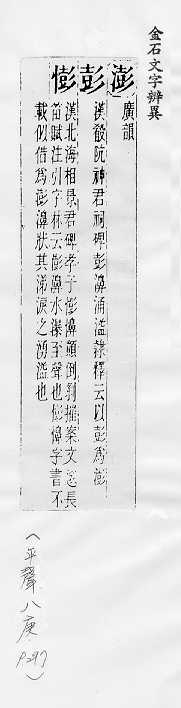 金石文字辨異
澎 廣韻
彭 漢殽阬神君祠碑彭濞涌溢隸釋云以彭爲澎
憉 漢北海相景君碑孝子憉憉顛倒剝摧案文選長
笛賦注引字林云澎濞水瀑至聲也憉憉字書不
載似借爲澎濞狀其涕淚之湧溢也
(平聲八庚
P.297)